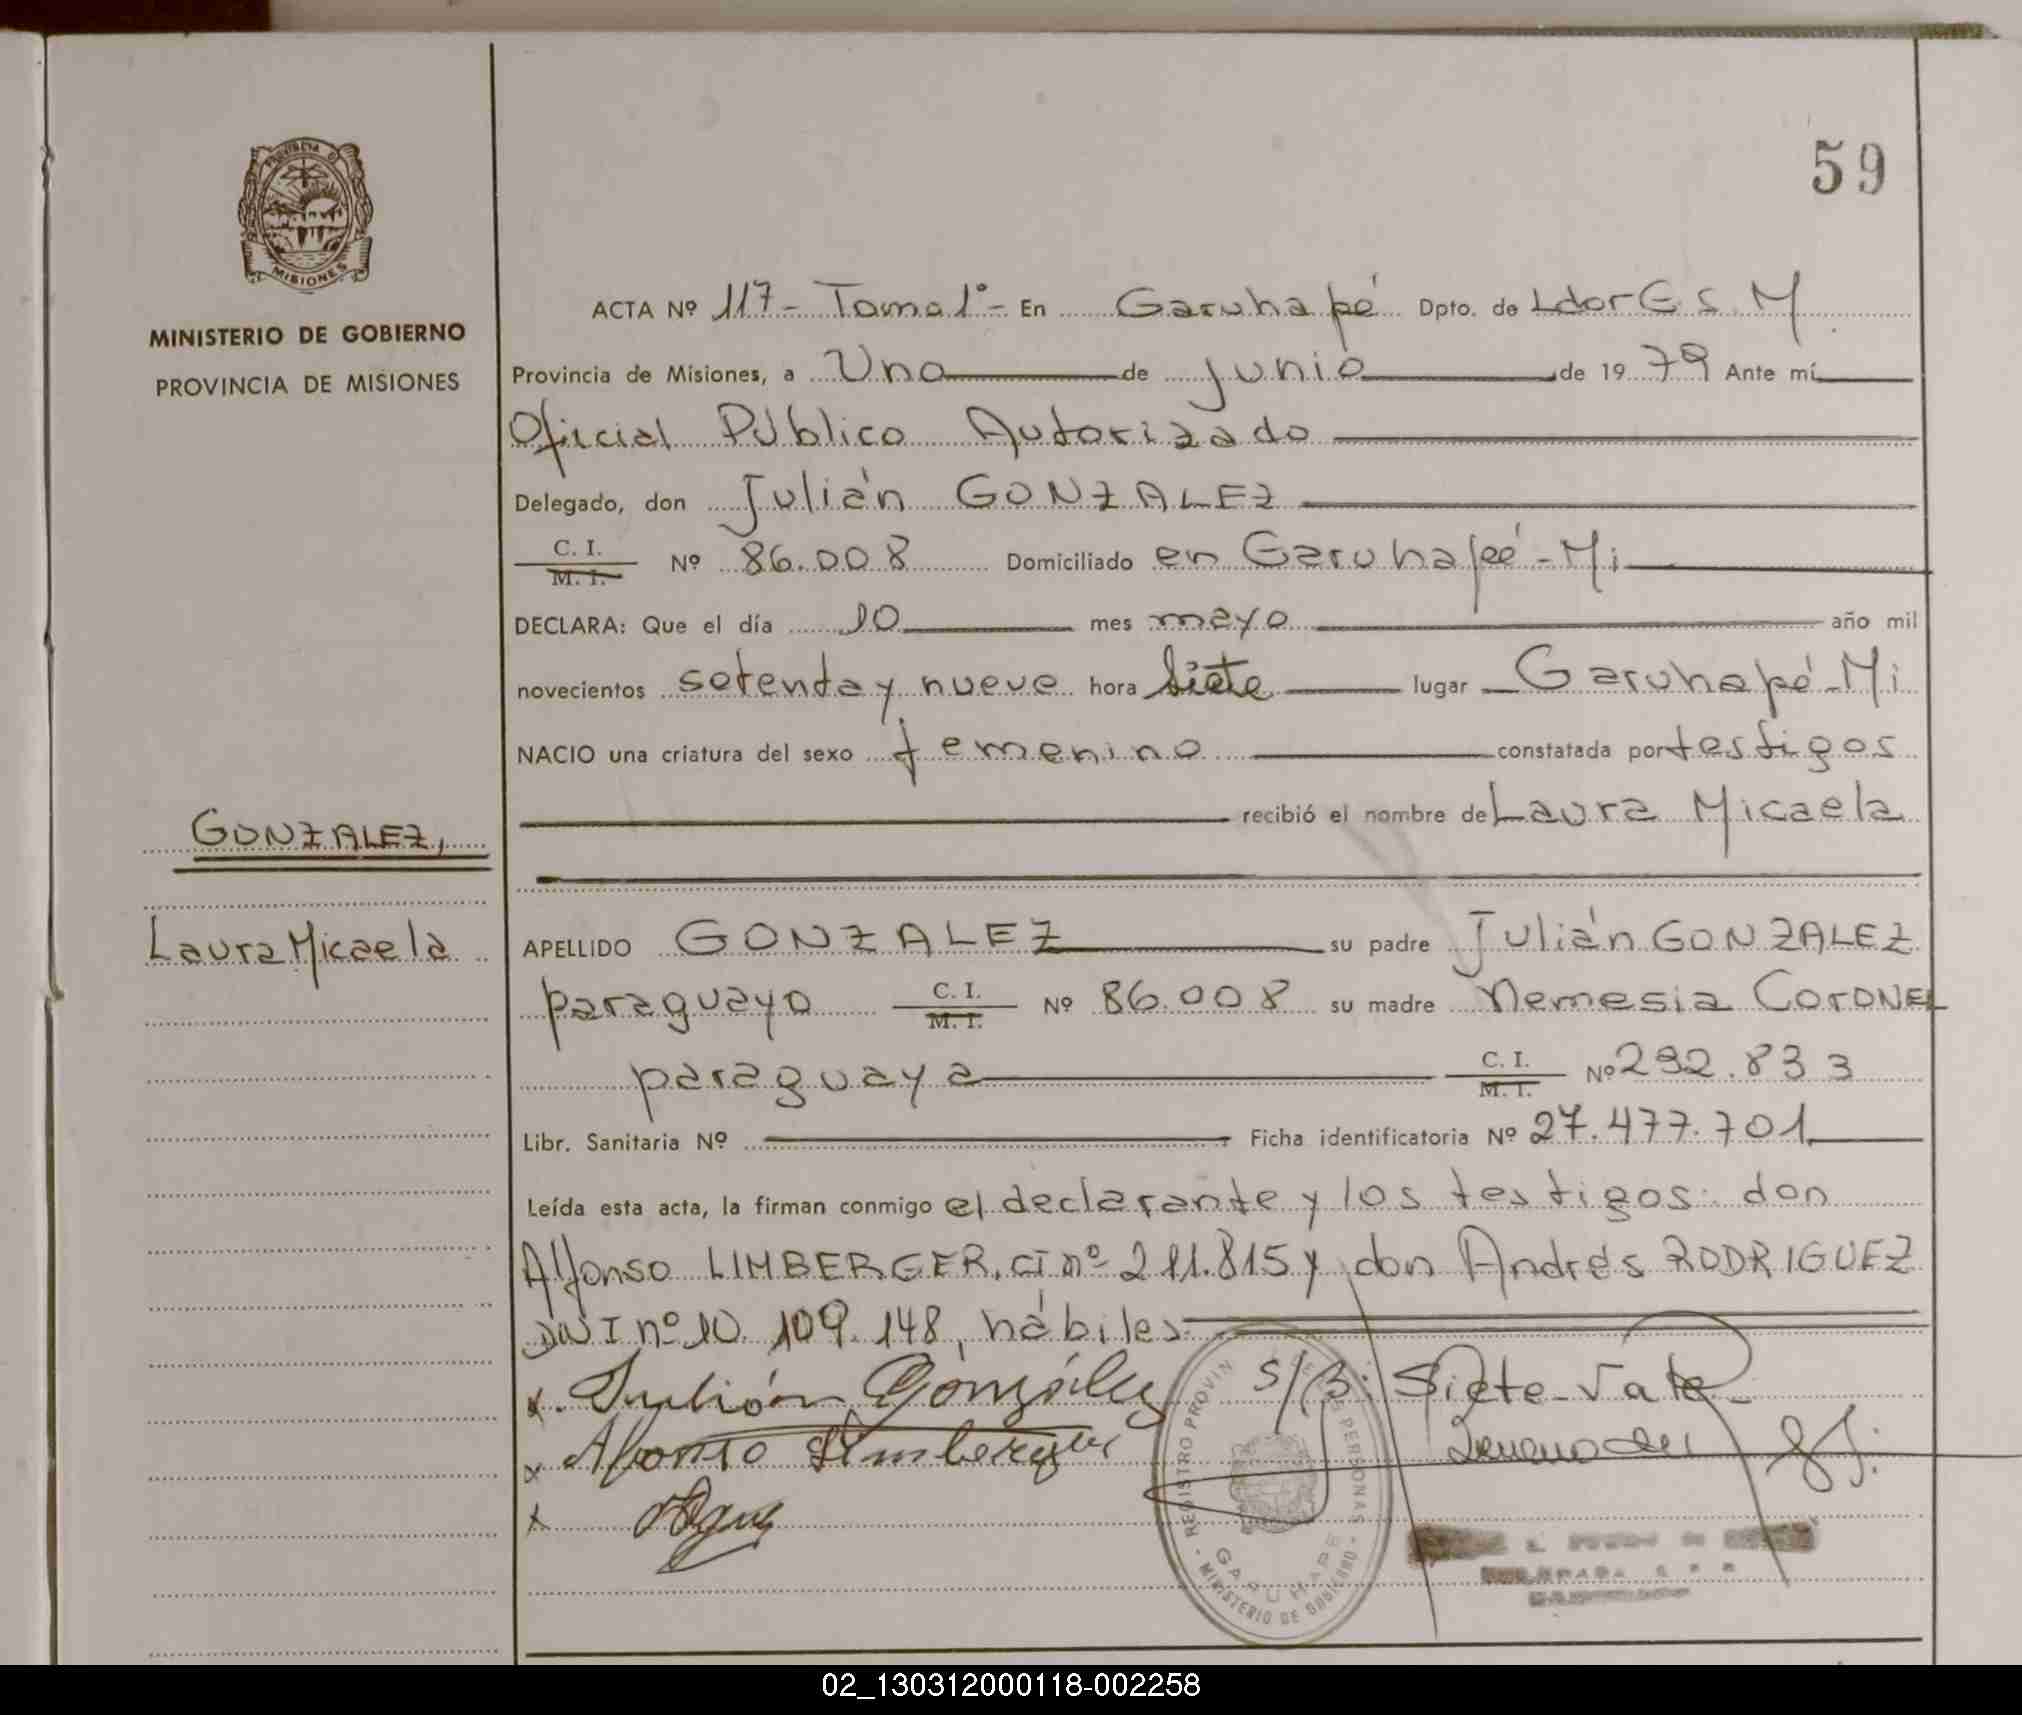 59
PROVINCIA DE
MISIONES
MINISTERIO DE GOBIERNO
PROVINCIA DE MISIONES
ACTA Nº 117 - Tomo 1º - En Garuhapé Dpto. de Ldor G. S. M
Provincia de Misiones, a Uno de junio de 1979 Ante mí
Oficial Público Autorizado
Delegado, don Julián GONZALEZ
C. I.
M. I. Nº 86.008 Domiciliado en Garuhapé - Mi
DECLARA: Que el día 10 mes mayo año mil
novecientos setenta y nueve hora Siete lugar Garuhapé - Mi
NACIO una criatura del sexo femenino constatada por testigos
recibió el nombre de Laura Micaela
GONZALEZ,
Laura Micaela
APELLIDO GONZALEZ su padre Julián GONZALEZ
paraguayo C. I.
M. I. Nº 86.008 su madre Nemesia CORONEL
paraguaya C. I.
M. I. Nº 292.833
Libr. Sanitaria Nº Ficha identificatoria Nº 27.477.701
Leída esta acta, la firman conmigo el declarante y los testigos: don
Alfonso LIMBERGER, CI nº 211.815 y don Andrés RODRIGUEZ
DNI nº 10.109.148, hábiles
x. Julián González S/B: Siete - Vale
x Alfonso Limberger
x
REGISTRO PROVIN DE LAS PERSONAS
GARUHAPE
MINISTERIO DE GOBIERNO
02_130312000118-002258